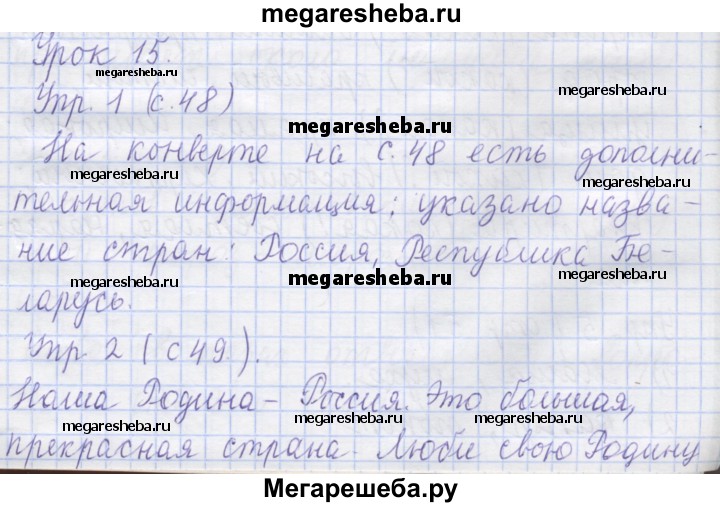 megaresheba.ru
Урок 15.
megaresheba.ru
megaresheba.ru
Упр. 1 (с.48)
megaresheba.ru
На конверте на с.48 есть дополни-
megaresheba.ru
megaresheba.ru
тельная информация: указано назва-
ние стран: Россия, Республика Бе-
megaresheba.ru
megaresheba.ru
megaresheba.ru
ларусь.
Упр 2 (с49.).
Наша Родина – Россия. Это большая,
megaresheba.ru
megaresheba.ru
megaresheba.ru
прекрасная страна. Люби свою Родину
Мегарешеба.ру